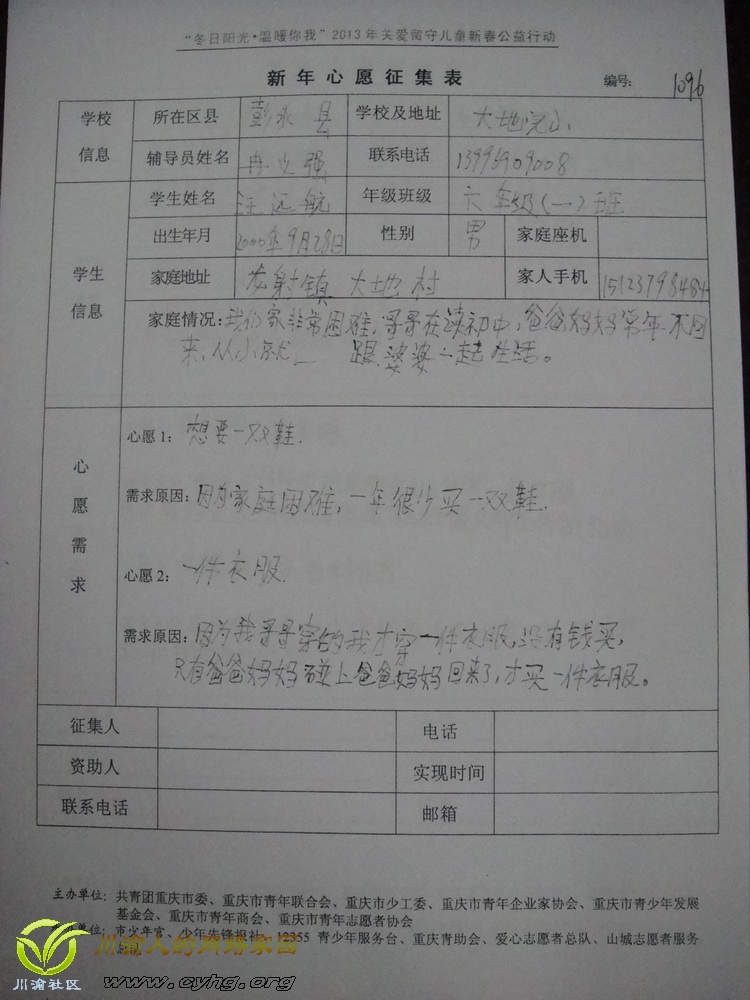 “冬日阳光·温暖你我”2013年关爱留守儿童新春公益行动
新年心愿征集表
编号: 1096
学校信息 所在区县 彭水县 学校及地址 大地完小
辅导员姓名 冉义强 联系电话 13996909008
学生信息 学生姓名 汪远航 年级班级 六年级(一)班
出生年月 2000年9月28日 性别 男 家庭座机
家庭地址 龙射镇大地村 家人手机 15123798484
家庭情况: 我们家非常困难,哥哥在读初中,爸爸妈妈常年不回
来,从小就 跟婆婆一起生活。
心愿需求
心愿1: 想要一双鞋.
需求原因: 因为家庭困难,一年很少买一双鞋.
心愿2: 一件衣服.
需求原因: 因为我哥哥穿的我才穿一件衣服,没有钱买,
只有爸爸妈妈碰上爸爸妈妈回来了,才买一件衣服。
征集人 电话
资助人 实现时间
联系电话 邮箱
主办单位: 共青团重庆市委、重庆市青年联合会、重庆市少工委、重庆市青年企业家协会、重庆市青少年发展
基金会、重庆市青年商会、重庆市青年志愿者协会
单位: 市少年宫、少年先锋报社、12355 青少年服务台、重庆青助会、爱心志愿者总队、山城志愿者服务
川渝人的网络家园
川渝社区 www.cyhg.org